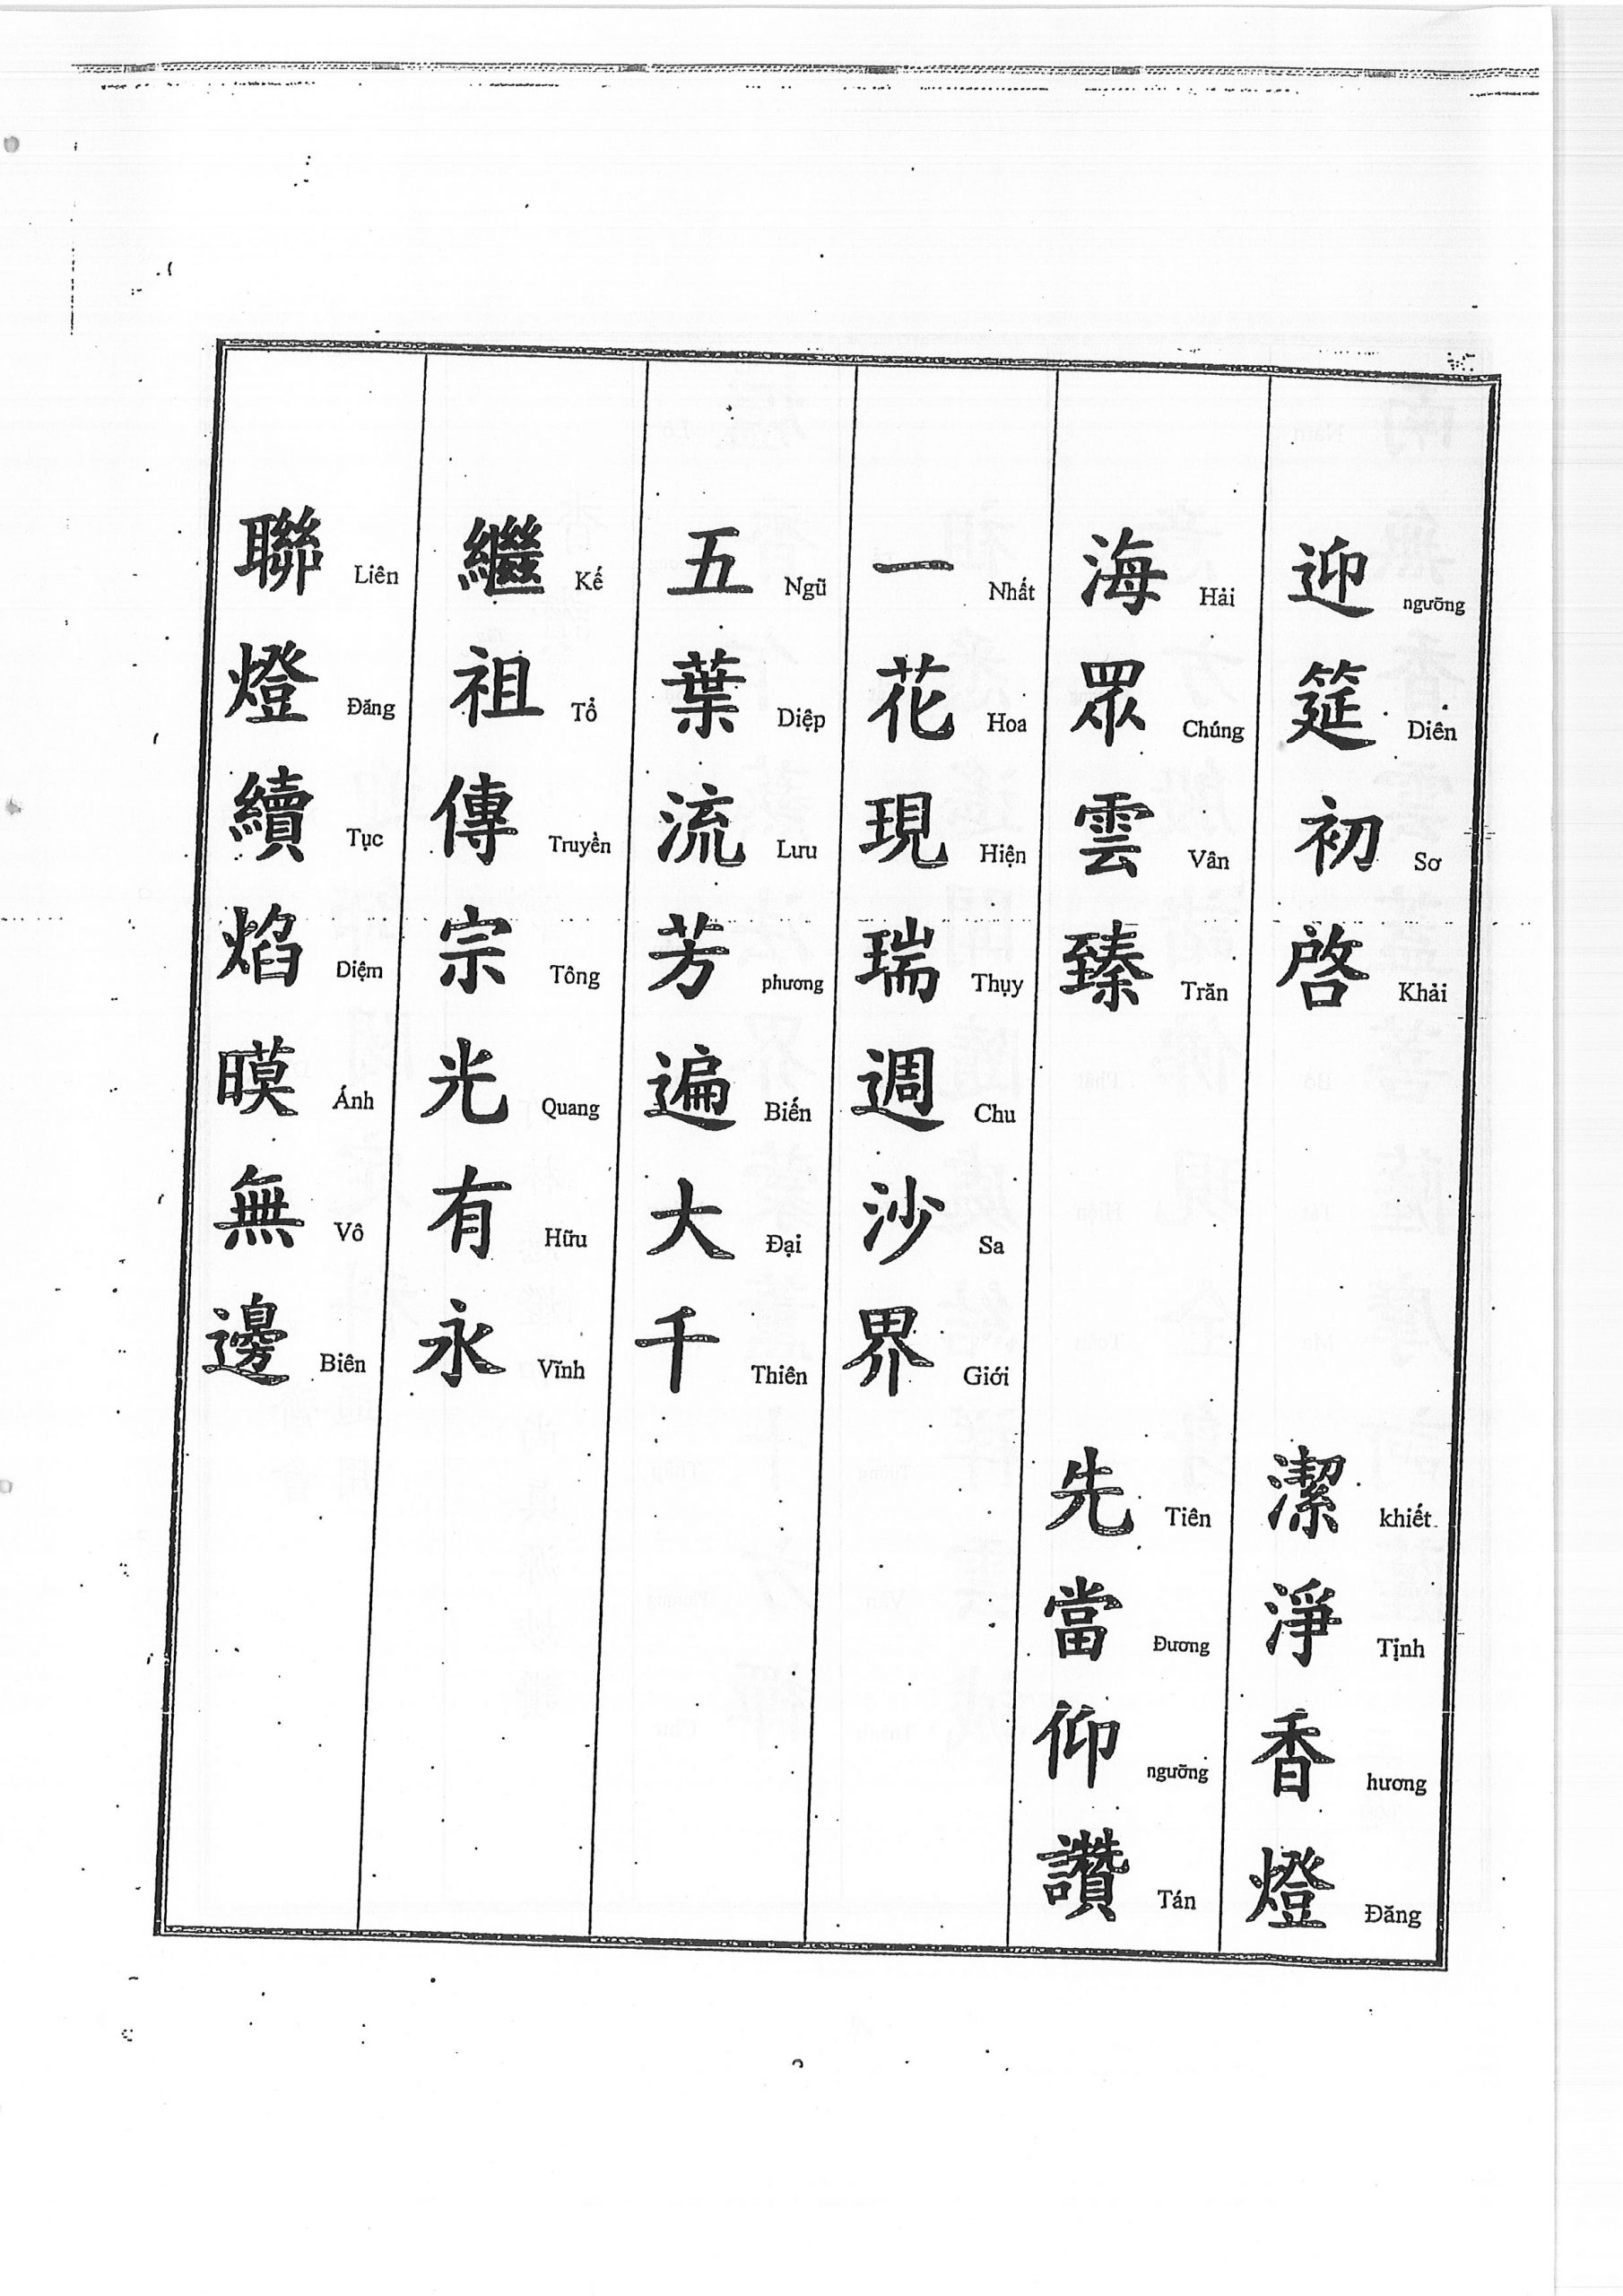 迎筵初啓 潔淨香燈
ngưỡng Diên Sơ Khải khiết Tịnh hương Đăng
海眾雲臻 先當仰讚
Hải Chúng Vân Trăn Tiên Đương ngưỡng Tán
一花現瑞週沙界
Nhất Hoa Hiện Thụy Chu Sa Giới
五葉流芳遍大千
Ngũ Diệp Lưu phương Biến Đại Thiên
繼祖傳宗光有永
Kế Tổ Truyền Tông Quang Hữu Vĩnh
聯燈續焰暎無邊
Liên Đăng Tục Diệm Ánh Vô Biên